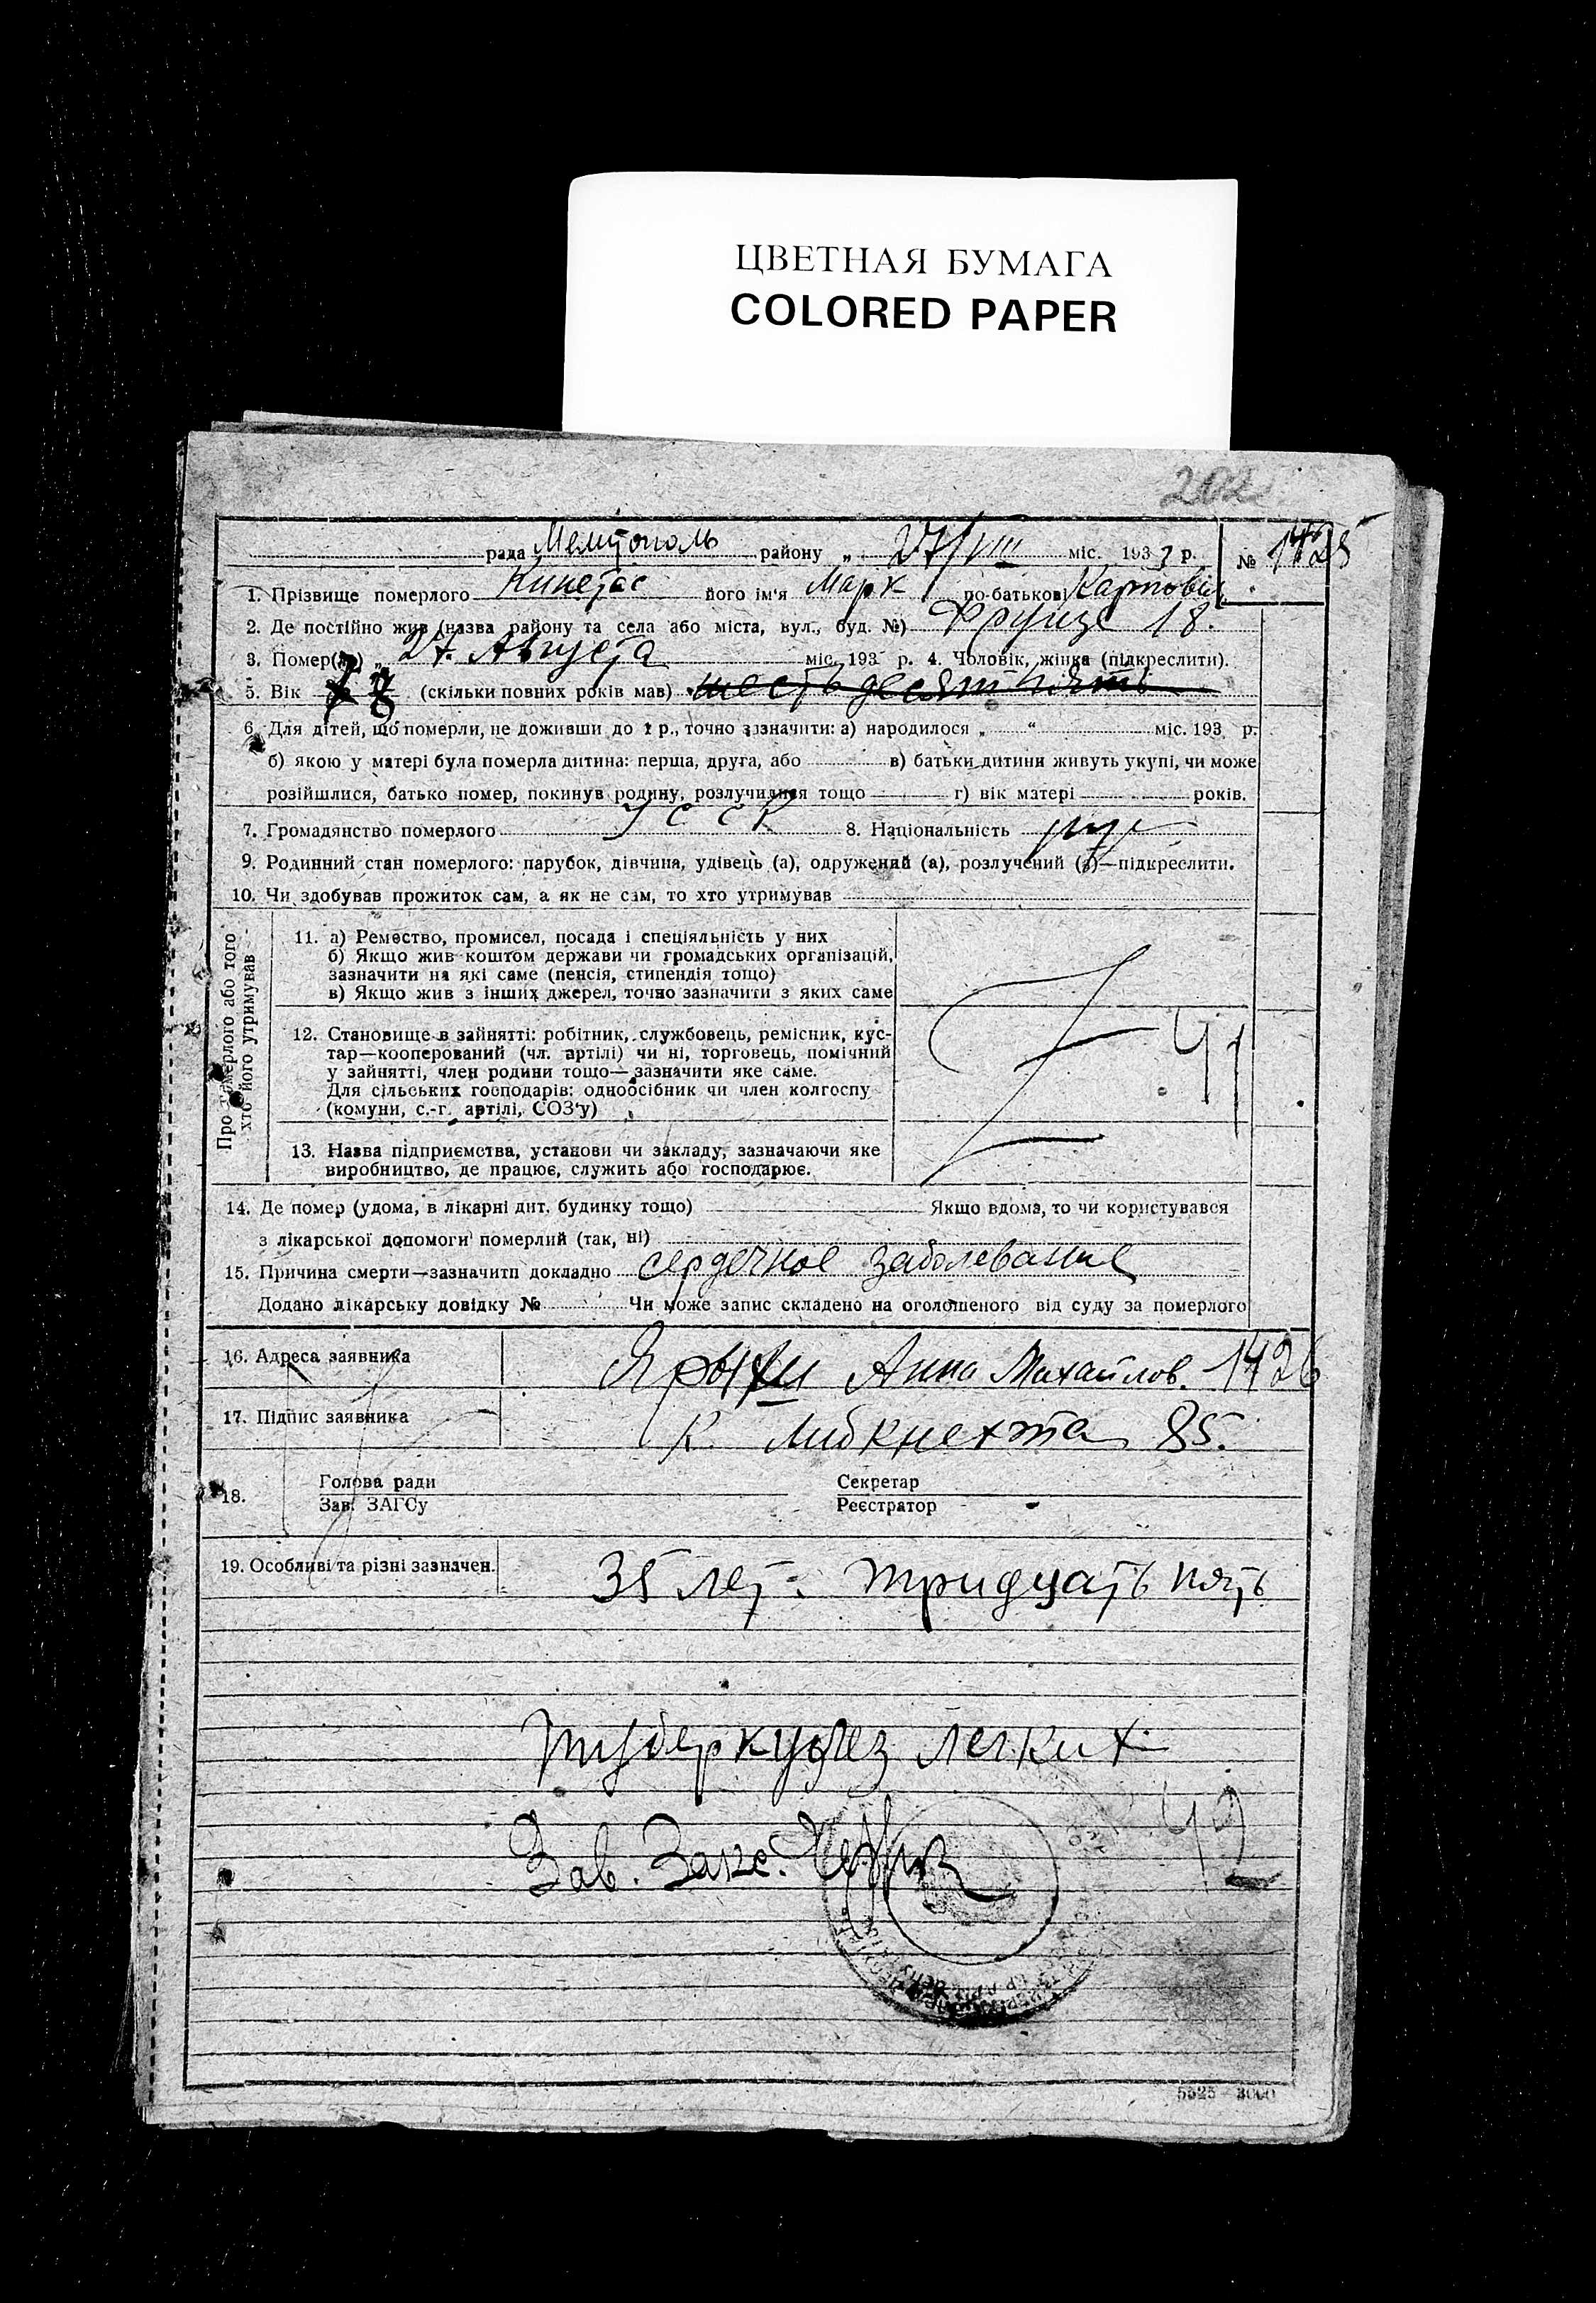 ЦВЕТНАЯ БУМАГА
COLORED PAPER
202
рада Мелитополь району „ 27/VIII міс. 1933 р. № 1425
1. Прізвище померлого його ім'я Марк по-батькові Карпович
2. Де постійно жив (назва району та села або міста, вул., буд. №) Фрунзе 18.
3. Помер(ла) „ 27. Августа міс. 193 р. 4. Чоловік, жінка (підкреслити).
5. Вік (скільки повних років мав) шестьдесят пять
6. Для дітей, що померли, не доживши до 1 р., точно зазначити: а) народилося „ “ міс. 193 р.
б) якою у матері була померла дитина: перша, друга, або в) батьки дитини живуть укупі, чи може
розійшлися, батько помер, покинув родину, розлучилися тощо г) вік матері років.
7. Громадянство померлого УССР 8. Національність рус
9. Родинний стан померлого: парубок, дівчина, удівець (а), одружений (а), розлучений (а)—підкреслити.
10. Чи здобував прожиток сам, а як не сам, то хто утримував
Про померлого або того
хто його утримував
11. а) Ремество, промисел, посада і спеціяльність у них
б) Якщо жив коштом держави чи громадських організацій,
зазначити на які саме (пенсія, стипендія тощо)
в) Якщо жив з інших джерел, точно зазначити з яких саме
12. Становище в зайнятті: робітник, службовець, ремісник, кус-
тар—кооперований (чл. артілі) чи ні, торговець, помічний
у зайнятті, член родини тощо—зазначити яке саме.
Для сільських господарів: одноосібник чи член колгоспу
(комуни, с.-г. артілі, СОЗ'у)
13. Назва підприємства, установи чи закладу, зазначаючи яке
виробництво, де працює, служить або господарює.
14. Де помер (удома, в лікарні дит. будинку тощо) Якщо вдома, то чи користувався
з лікарської допомоги померлий (так, ні)
15. Причина смерти—зазначити докладно сердечное заболевание
Додано лікарську довідку № Чи може запис складено на оголошеного від суду за померлого
16. Адреса заявника Анна Михайлов. 1426
17. Підпис заявника К. Либкнехта 85.
18. Голова ради Секретар
Зав. ЗАГСу Реєстратор
19. Особливі та різні зазначен. 35 лет. тридцать пять
туберкулез легких
Зав. Загс.
42
5525 — 3000